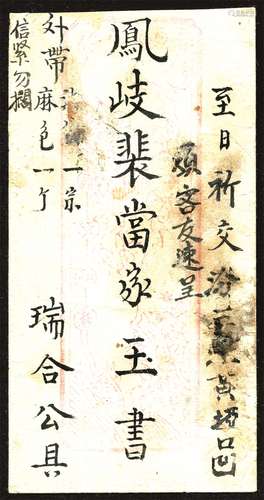 至日祈交 黃坭凹
煩客友速呈
鳳岐裴當家玉書
外帶 一宗
麻色一个
信緊勿擱
瑞合公具